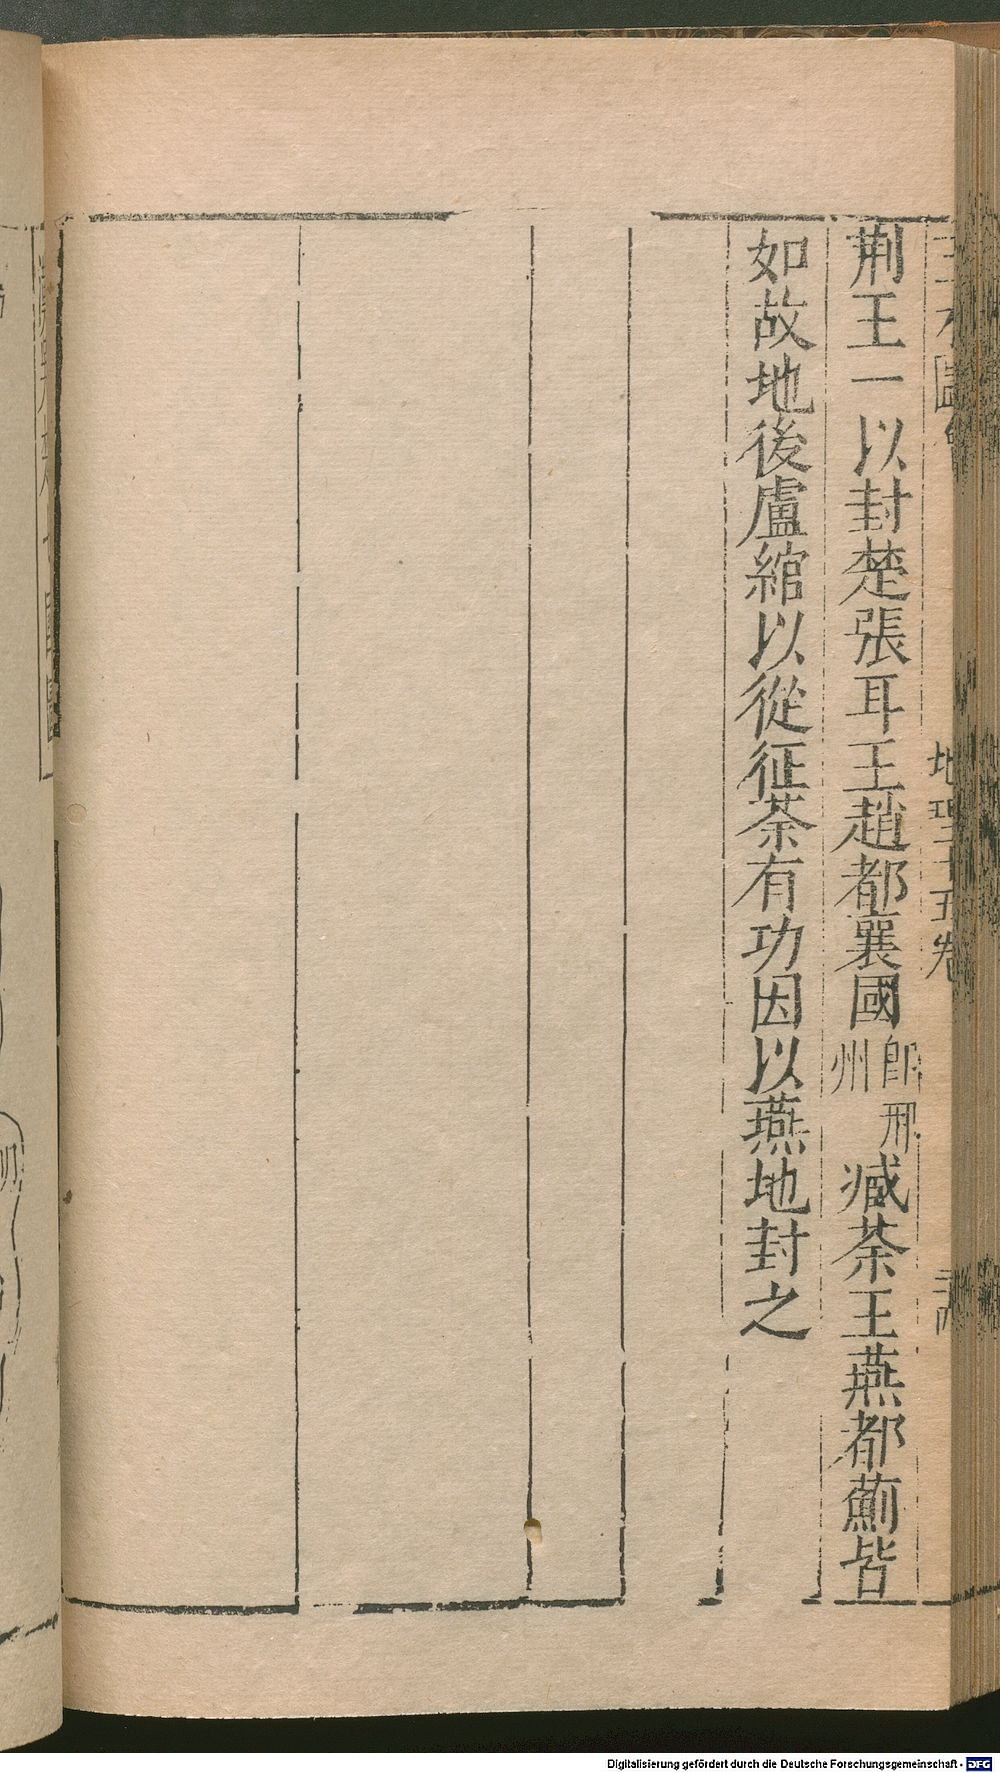 地理十五卷
荆王一以封楚張耳王趙都襄國即邢州臧荼王燕都薊皆
如故地後盧綰以從征荼有功因以燕地封之
Digitalisierung gefördert durch die Deutsche Forschungsgemeinschaft - DFG